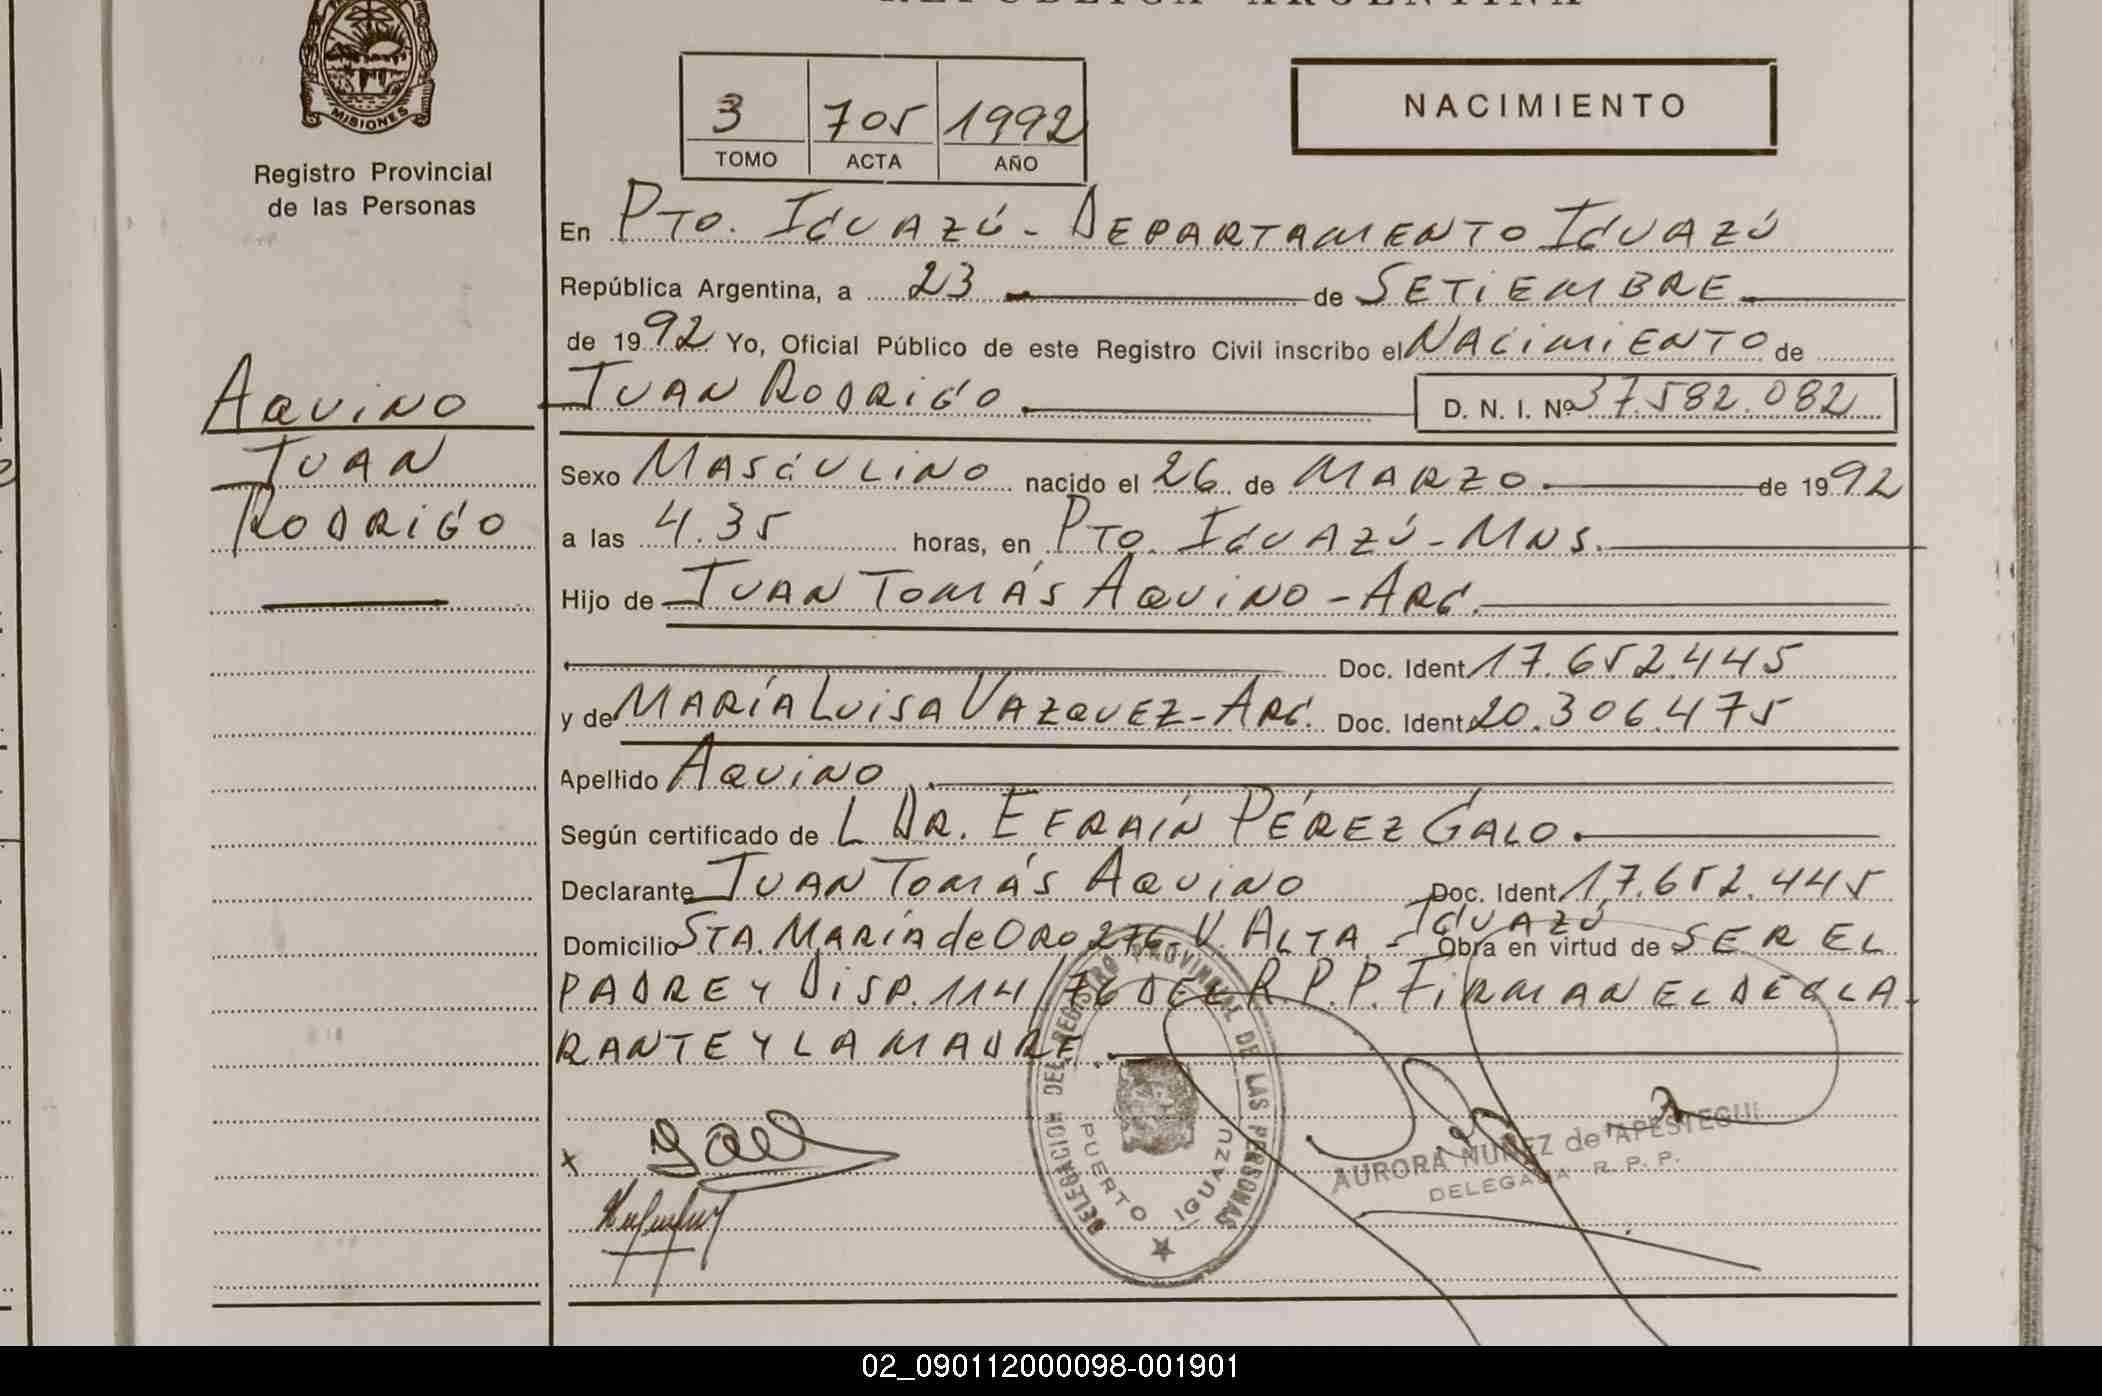 REPUBLICA ARGENTINA
MISIONES
Registro Provincial
de las Personas
3 705 1992
TOMO ACTA AÑO
NACIMIENTO
En PTO. IGUAZÚ - DEPARTAMENTO IGUAZÚ
República Argentina, a 23 de SETIEMBRE
de 1992 Yo, Oficial Público de este Registro Civil inscribo el NACIMIENTO de
JUAN RODRIGO D. N. I. Nº 37.582.082
AQUINO
JUAN
RODRIGO
Sexo MASCULINO nacido el 26 de MARZO de 1992
a las 4.35 horas, en PTO. IGUAZÚ - MNS.
Hijo de JUAN TOMÁS AQUINO - ARG.
Doc. Ident. 17.652.445
y de MARÍA LUISA VAZQUEZ - ARG. Doc. Ident. 20.306.475
Apellido AQUINO
Según certificado de L DR. EFRAÍN PÉREZ GALO.
Declarante JUAN TOMÁS AQUINO Doc. Ident. 17.652.445
Domicilio STA. MARÍA de ORO 276 V. ALTA - IGUAZÚ Obra en virtud de SER EL
PADRE Y DISP. 114/76 DEL R.P.P. FIRMAN EL DECLA-
RANTE Y LA MADRE.
DELEGACION DEL REGISTRO PROVINCIAL DE LAS PERSONAS
PUERTO IGUAZU
AURORA NUÑEZ de APESTEGUI
DELEGADA R. P. P.
02_090112000098-001901